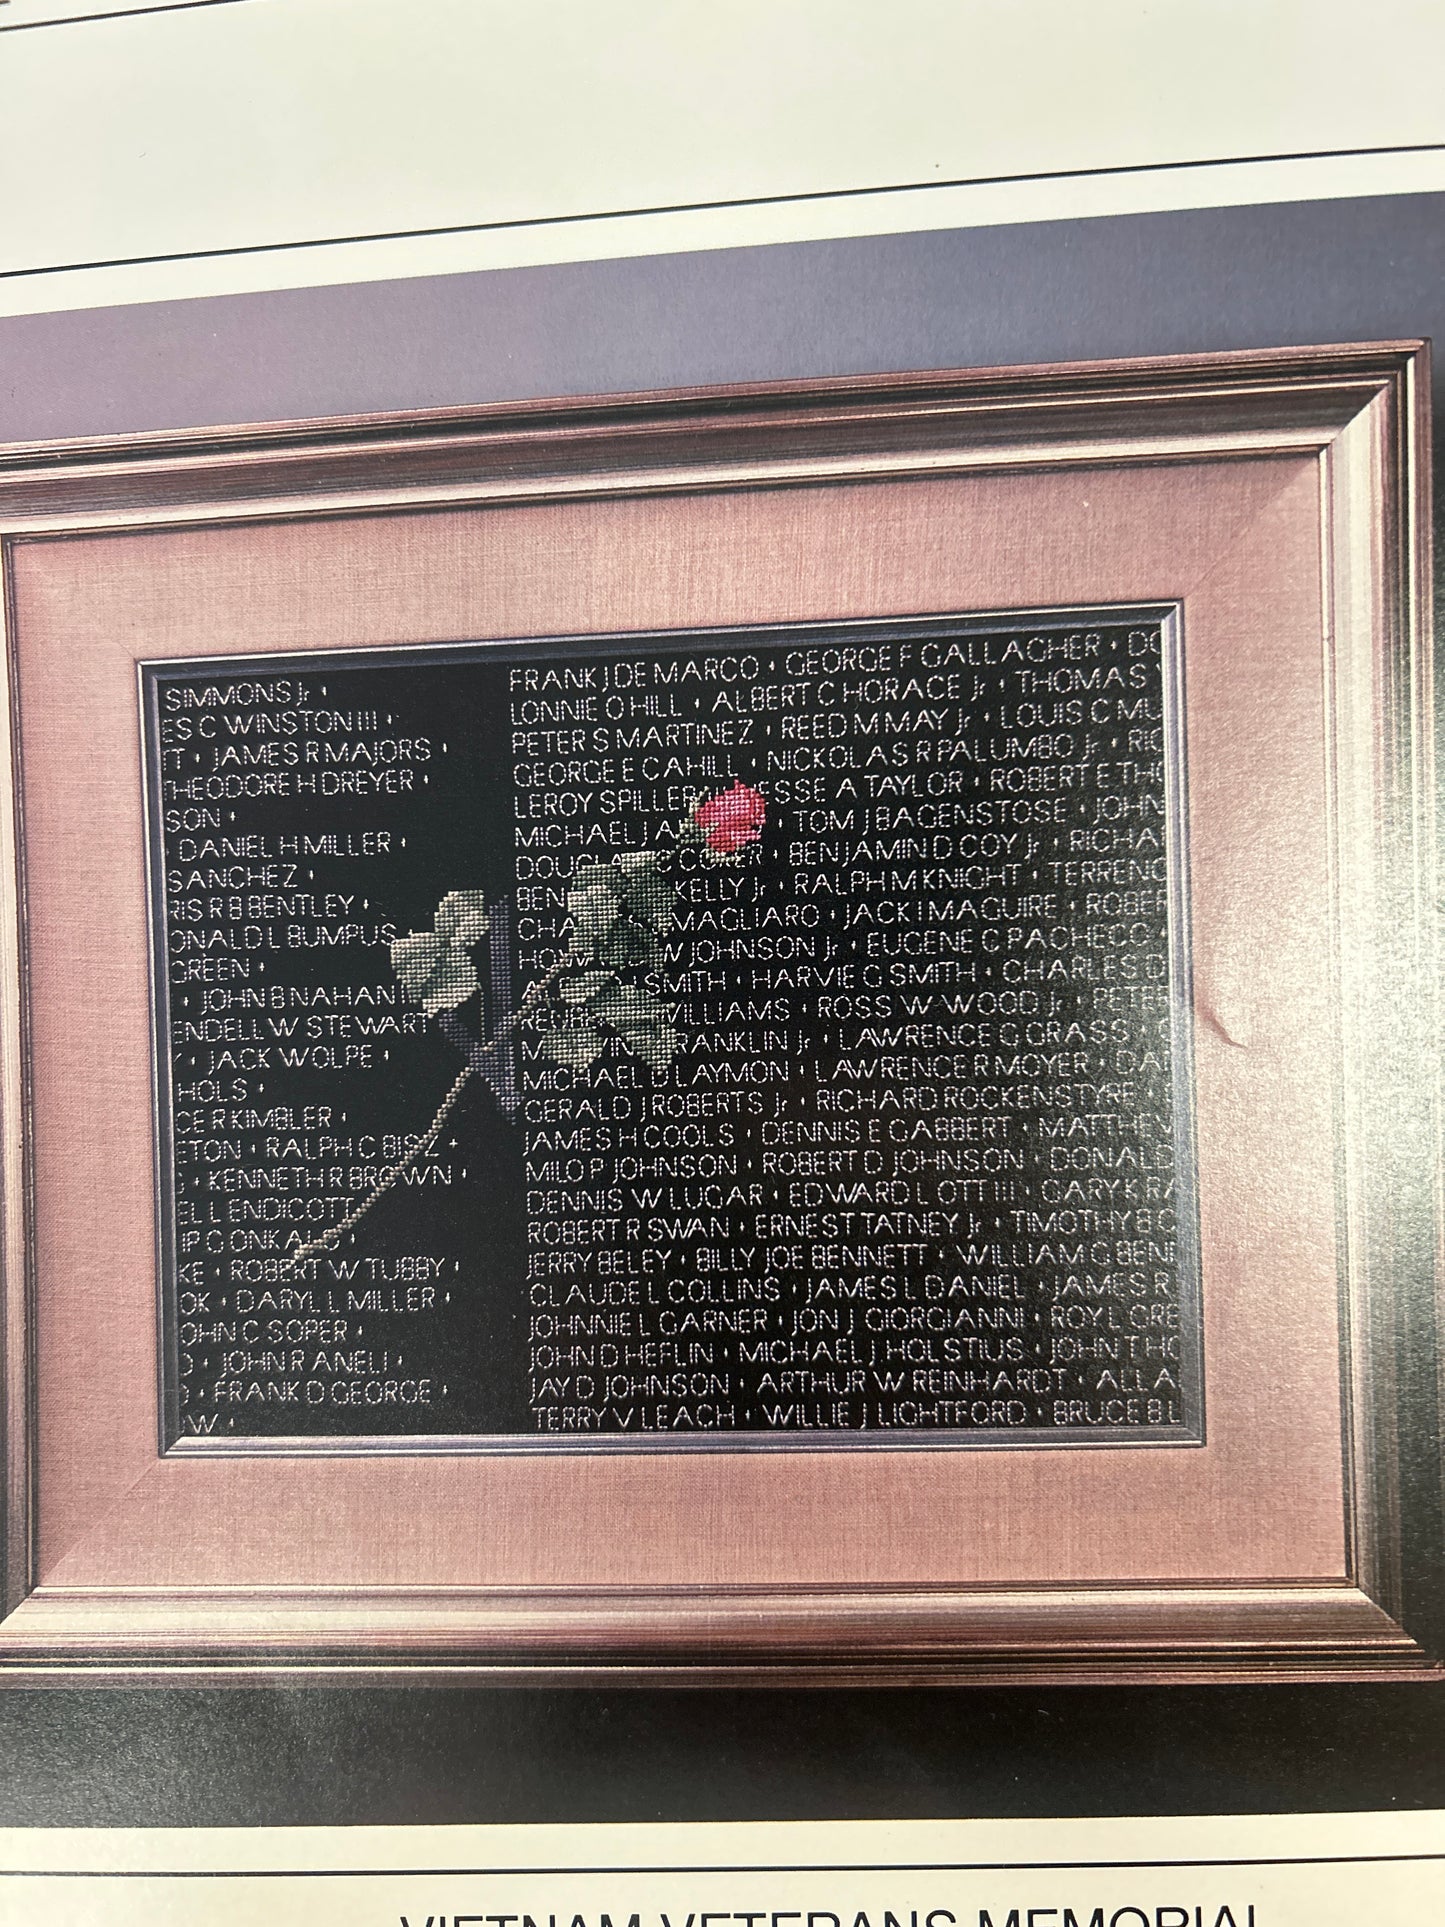 SIMMONS Jr •
ES C WINSTON III •
TT • JAMES R MAJORS •
THEODORE H DREYER •
SON •
• DANIEL H MILLER •
SANCHEZ •
RIS R B BENTLEY •
ONALD L BUMPUS
GREEN •
• JOHN B NAHAN
ENDELL W STEWART
• JACK WOLPE •
HOLS •
CE R KIMBLER •
ETON • RALPH C BISZ •
• KENNETH R BROWN •
EL L ENDICOTT
IP O ONKALO •
KE • ROBERT W TUBBY •
OK • DARYL L MILLER •
OHN C SOPER •
• JOHN R ANELI •
• FRANK D GEORGE •
W •
FRANK J DE MARCO • GEORGE F GALLAGHER • DO
LONNIE O HILL • ALBERT C HORACE Jr • THOMAS
PETER S MARTINEZ • REED M MAY Jr • LOUIS C MU
GEORGE E CAHILL • NICKOLAS R PALUMBO Jr • RIC
LEROY SPILLER ESSE A TAYLOR • ROBERT E THO
MICHAEL J A • TOM J BAGENSTOSE • JOHN
DOUGLA COKER • BENJAMIN D COY Jr • RICHA
BEN KELLY Jr • RALPH M KNIGHT • TERRENC
CHA MAGLIARO • JACK I MAGUIRE • ROBER
HOW W JOHNSON Jr • EUGENE C PACHECO •
SMITH • HARVIE G SMITH • CHARLES D
WILLIAMS • ROSS W WOOD Jr • PETER
FRANKLIN Jr • LAWRENCE G GRASS •
MICHAEL D LAYMON • LAWRENCE R MOYER • DA
GERALD J ROBERTS Jr • RICHARD ROCKENSTYRE •
JAMES H COOLS • DENNIS E GABBERT • MATTHEW
MILO P JOHNSON • ROBERT D JOHNSON • DONALD
DENNIS W LUGAR • EDWARD L OTT III • GARY K RA
ROBERT R SWAN • ERNEST TATNEY Jr • TIMOTHY B C
JERRY BELEY • BILLY JOE BENNETT • WILLIAM G BEN
CLAUDE L COLLINS • JAMES L DANIEL • JAMES R
JOHNNIE L GARNER • JON J GIORGIANNI • ROY L GRE
JOHN D HEFLIN • MICHAEL J HOLSTIUS • JOHN T HO
JAY D JOHNSON • ARTHUR W REINHARDT • ALL A
TERRY V LEACH • WILLIE J LIGHTFORD • BRUCE B L
VIETNAM VETERANS MEMORIAL